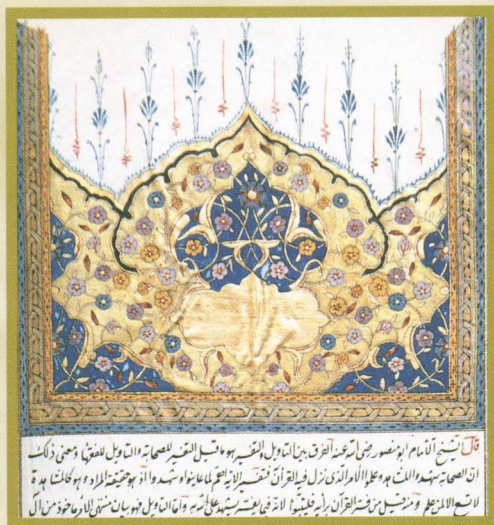 قال الشيخ الامام ابو منصور رضى الله عنه الفرق بين التاويل والتفسير هو ما قيل التفسير للصحابة والتاويل للفقهاء ومعنى ذلك
ان الصحابة شهدوا المشاهد وعلموا الامر الذى نزل فيه القرآن فتفسير الاية اهم لما عاينوا وشهدوا اذ هو حقيقة المراد وهو كالمشاهدة
لا تسمح الا لمن علم ومنه قيل من فسر القرآن برأيه فليتبوأ لانه فيما يفسر يشهد على الله به واما التاويل فهو بيان منتهى الامر مأخوذ من آل